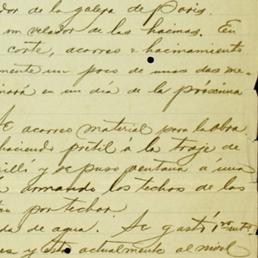 dor de la galega de Paris.
un velador de las hacinas. En
corte, acarreo e hacinamiento
mente un poco de unas dos me
en un dia de la próxima
E acarreo material para la obra.
haciendo pretil a la troje de
se puso ventana á una
armando los techos de las
por techar.
da de agua. Se gastó
y está actualmente al nivel